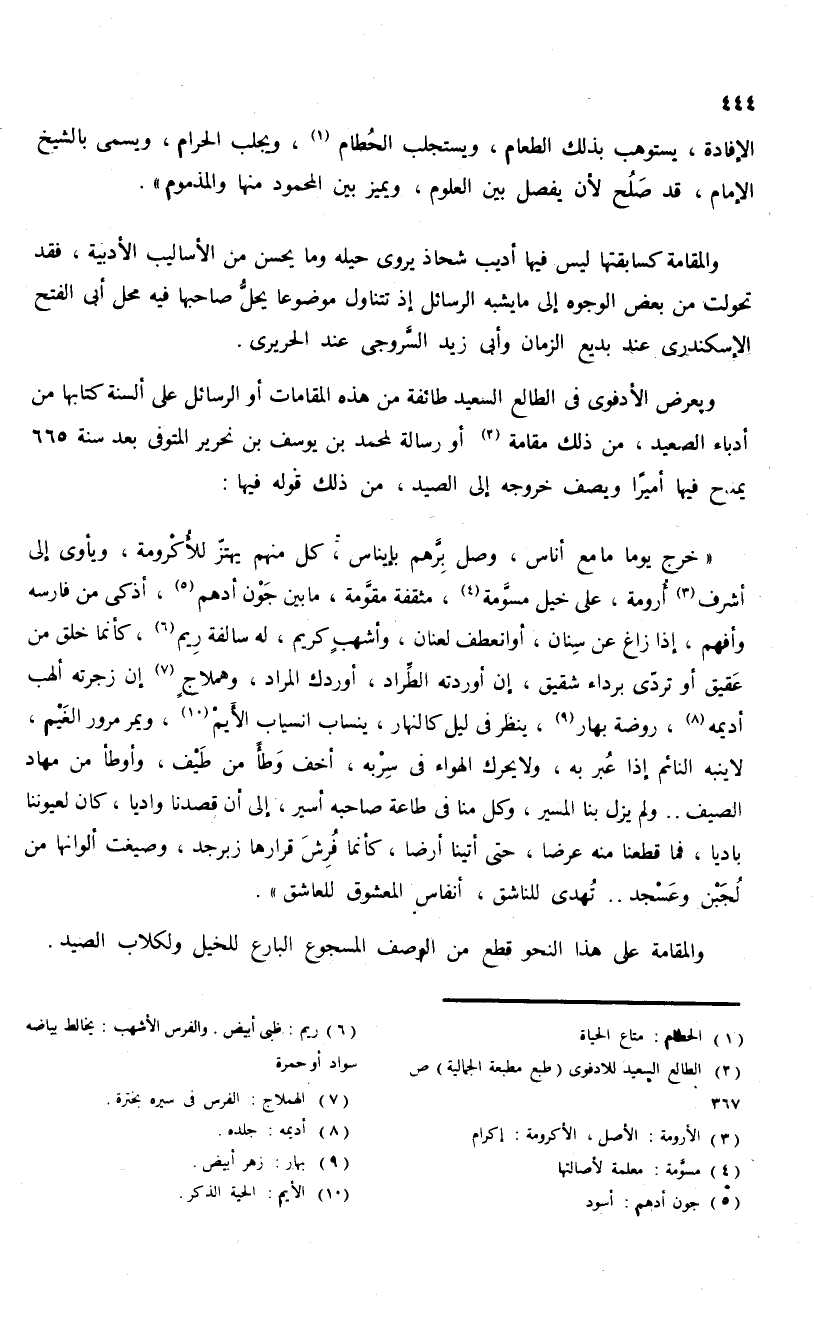 ٤٤٤
الإفادة ، يستوهب بذلك الطعام ، ويستجلب الحُطام (١) ، ويجلب الحرام ، ويسمى بالشيخ
الإمام ، قد صَلُح لأن يفصل بين العلوم ، ويميز بين المحمود منها والمذموم » .
والمقامة كسابقتها ليس فيها أديب شحاذ يروى حيله وما يحسن من الأساليب الأدبية ، فقد
تحولت من بعض الوجوه إلى مايشبه الرسائل إذ تتناول موضوعا يحلُّ صاحبها فيه محل أبى الفتح
الإسكندرى عند بديع الزمان وأبى زيد السَّروجى عند الحريرى .
ويعرض الأدفوى فى الطالع السعيد طائفة من هذه المقامات أو الرسائل على ألسنة كتابها من
أدباء الصعيد ، من ذلك مقامة (٢) أو رسالة لمحمد بن يوسف بن نحرير المتوفى بعد سنة ٦٦٥
يمدح فيها أميرًا ويصف خروجه إلى الصيد ، من ذلك قوله فيها :
« خرج يوما مامع أناس ، وصل بِرَّهم بإيناس ، كل منهم يهتزّ للأُكْرومة ، ويأوى إلى
أشرف (٣) أُرومة ، على خيل مسوَّمة (٤) ، مثقفة مقوَّمة ، مابين جَوْن أدهم (٥) ، أذكى من فارسه
وأفهم ، إذا زاغ عن سِنان ، أوانعطف لعنان ، وأشهبٍ كريم ، له سالفة رِيم (٦) ، كأنما خلق من
عَقيق أو تردّى برداء شقيق ، إن أوردته الطِّراد ، أوردك المراد ، وهملاجٍ (٧) إن زجرته ألهب
أديمه (٨) ، روضة بهار (٩) ، ينظر فى ليل كالنهار ، ينساب انسياب الأَيمْ (١٠) ، ويمر مرور الغَيْم ،
لاينبه النائم إذا عُبر به ، ولايحرك الهواء فى سِرْبه ، أخف وَطأً من طَيْف ، وأوطأ من مهاد
الصيف .. ولم يزل بنا المسير ، وكل منا فى طاعة صاحبه أسير ، إلى أن قصدنا واديا ، كان لعيوننا
باديا ، فما قطعنا منه عرضا ، حتى أتينا أرضا ، كأنما فُرِشَ قرارها زبرجد ، وصيغت ألوانها من
لُجَيْن وعَسْجد .. تُهدى للناشق ، أنفاس المعشوق للعاشق » .
والمقامة على هذا النحو قطع من الوصف المسجوع البارع للخيل ولكلاب الصيد .
(١) الحطام : متاع الحياة
(٢) الطالع السعيد للادفوى (طبع مطبعة الجمالية) ص
٣٦٧
(٣) الأرومة : الأصل ، الأكرومة : إكرام
(٤) مسوَّمة : معلمة لأصالتها
(٥) جون أدهم : أسود
(٦) ريم : ظبى أبيض . والفرس الأشهب : يخالط بياضه
سواد أو حمرة
(٧) الهملاج : الفرس فى سيره بخترة .
(٨) أديمه : جلده .
(٩) بهار : زهر أبيض .
(١٠) الأيم : الحية الذكر .